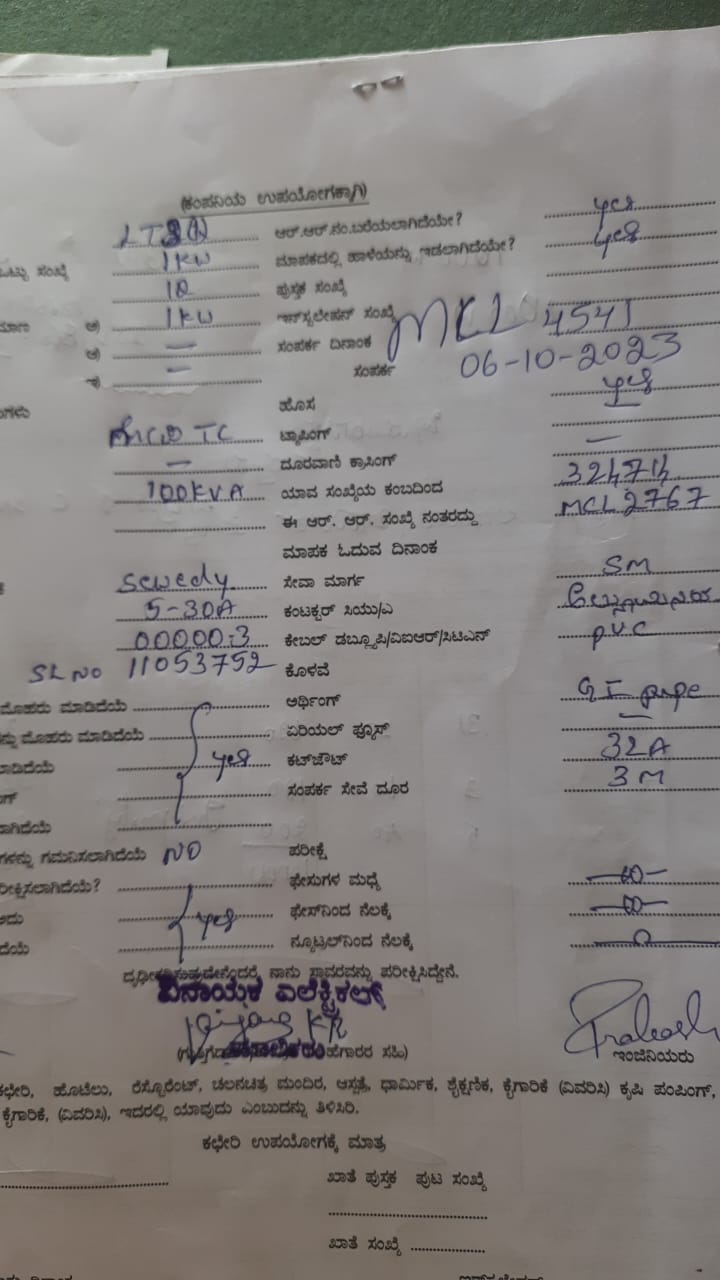 (ಕಂಪನಿಯ ಉಪಯೋಗಕ್ಕಾಗಿ)
ಆರ್.ಆರ್.ನಂ.ಬರೆಯಲಾಗಿದೆಯೇ? yes
ಒಟ್ಟು ಸಂಖ್ಯೆ 1KW ಮಾಪಕದಲ್ಲಿ ಹಾಳೆಯನ್ನು ಇಡಲಾಗಿದೆಯೇ? yes
ಪುಸ್ತಕ ಸಂಖ್ಯೆ
ಅ) 1KW ಇನ್‌ಸ್ಟಲೇಷನ್ ಸಂಖ್ಯೆ MCL 4541
ಆ) — ಸಂಪರ್ಕ ದಿನಾಂಕ 06-10-2023
ಇ) — ಸಂಪರ್ಕ
ಹೊಸ yes
TC ಟ್ಯಾಪಿಂಗ್ —
— ದೂರವಾಣಿ ಕ್ರಾಸಿಂಗ್ —
100KVA ಯಾವ ಸಂಖ್ಯೆಯ ಕಂಬದಿಂದ 324714
ಈ ಆರ್. ಆರ್. ಸಂಖ್ಯೆ ನಂತರದ್ದು MCL2767
ಮಾಪಕ ಓದುವ ದಿನಾಂಕ
sewedy ಸೇವಾ ಮಾರ್ಗ SM
5-30A ಕಂಟಕ್ಟರ್ ಸಿಯು/ಎ
00000.3 ಕೇಬಲ್ ಡಬ್ಲ್ಯೂಪಿ/ವಿಐಆರ್/ಸಿಟಿಎಸ್ P.V.C
SL NO 11053752 ಕೊಳವೆ
ಮೊಹರು ಮಾಡಿದೆಯೆ ಅರ್ಥಿಂಗ್ GI pipe
ಮೊಹರು ಮಾಡಿದೆಯೆ ಏರಿಯಲ್ ಫ್ಯೂಸ್ —
yes ಕಟ್‌ಔಟ್ 32A
ಸಂಪರ್ಕ ಸೇವೆ ದೂರ 3M
ಗಮನಿಸಲಾಗಿದೆಯೆ NO ಪರೀಕ್ಷೆ
ಫೇಸುಗಳ ಮಧ್ಯೆ
yes ಫೇಸ್‌ನಿಂದ ನೆಲಕ್ಕೆ
ನ್ಯೂಟ್ರಲ್‌ನಿಂದ ನೆಲಕ್ಕೆ
ನಾನು ಸ್ಥಾವರವನ್ನು ಪರೀಕ್ಷಿಸಿದ್ದೇನೆ.
ವಿನಾಯಕ ಎಲೆಕ್ಟ್ರಿಕಲ್ಸ್
Prakash
ಸಹಿ) ಇಂಜಿನಿಯರು
ಕಛೇರಿ, ಹೊಟೆಲು, ರೆಸ್ಟೋರೆಂಟ್, ಚಲನಚಿತ್ರ ಮಂದಿರ, ಆಸ್ಪತ್ರೆ, ಧಾರ್ಮಿಕ, ಶೈಕ್ಷಣಿಕ, ಕೈಗಾರಿಕೆ (ವಿವರಿಸಿ) ಕೃಷಿ ಪಂಪಿಂಗ್,
ಕೈಗಾರಿಕೆ, (ವಿವರಿಸಿ), ಇದರಲ್ಲಿ ಯಾವುದು ಎಂಬುದನ್ನು ತಿಳಿಸಿರಿ.
ಕಛೇರಿ ಉಪಯೋಗಕ್ಕೆ ಮಾತ್ರ
ಖಾತೆ ಪುಸ್ತಕ ಪುಟ ಸಂಖ್ಯೆ
ಖಾತೆ ಸಂಖ್ಯೆ